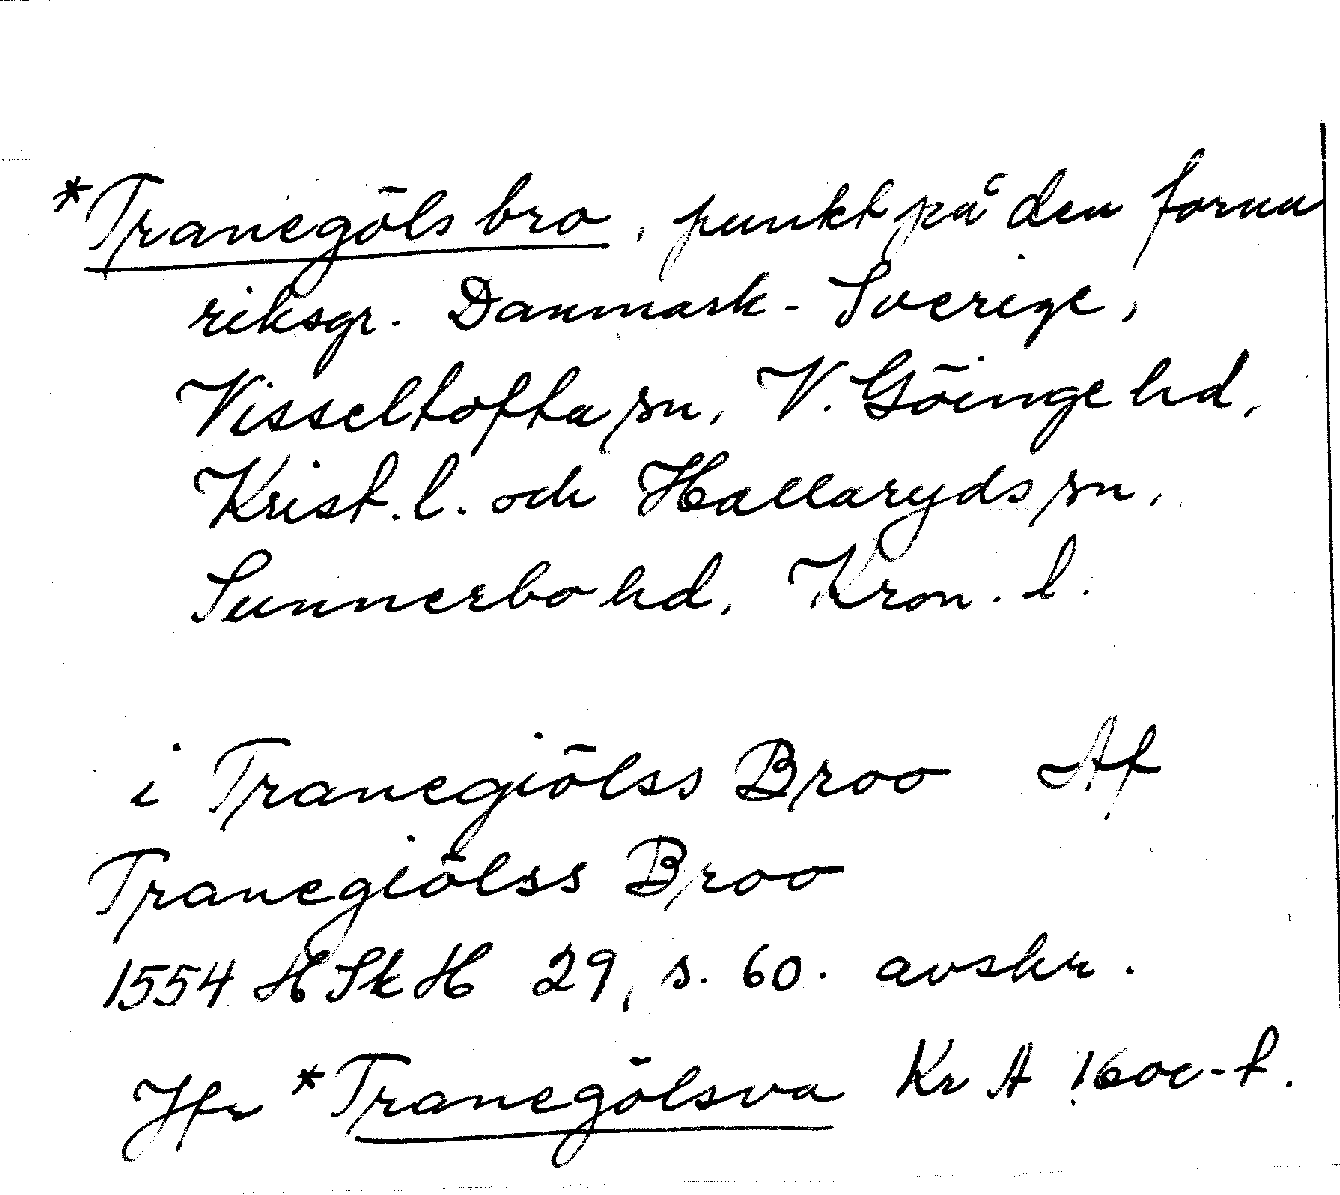 *Tranegöls bro, punkt på den forna
riksgr. Danmark - Sverige,
Visseltofta sn, V. Göinge hd,
Krist. l. och Hallaryds sn,
Sunnerbo hd, Kron. l.
i Tranegiölss Broo Af
Tranegiölss Broo
1554 HSkH 29, s. 60. avskr.
Jfr *Tranegölsva Kr A 1600-t.